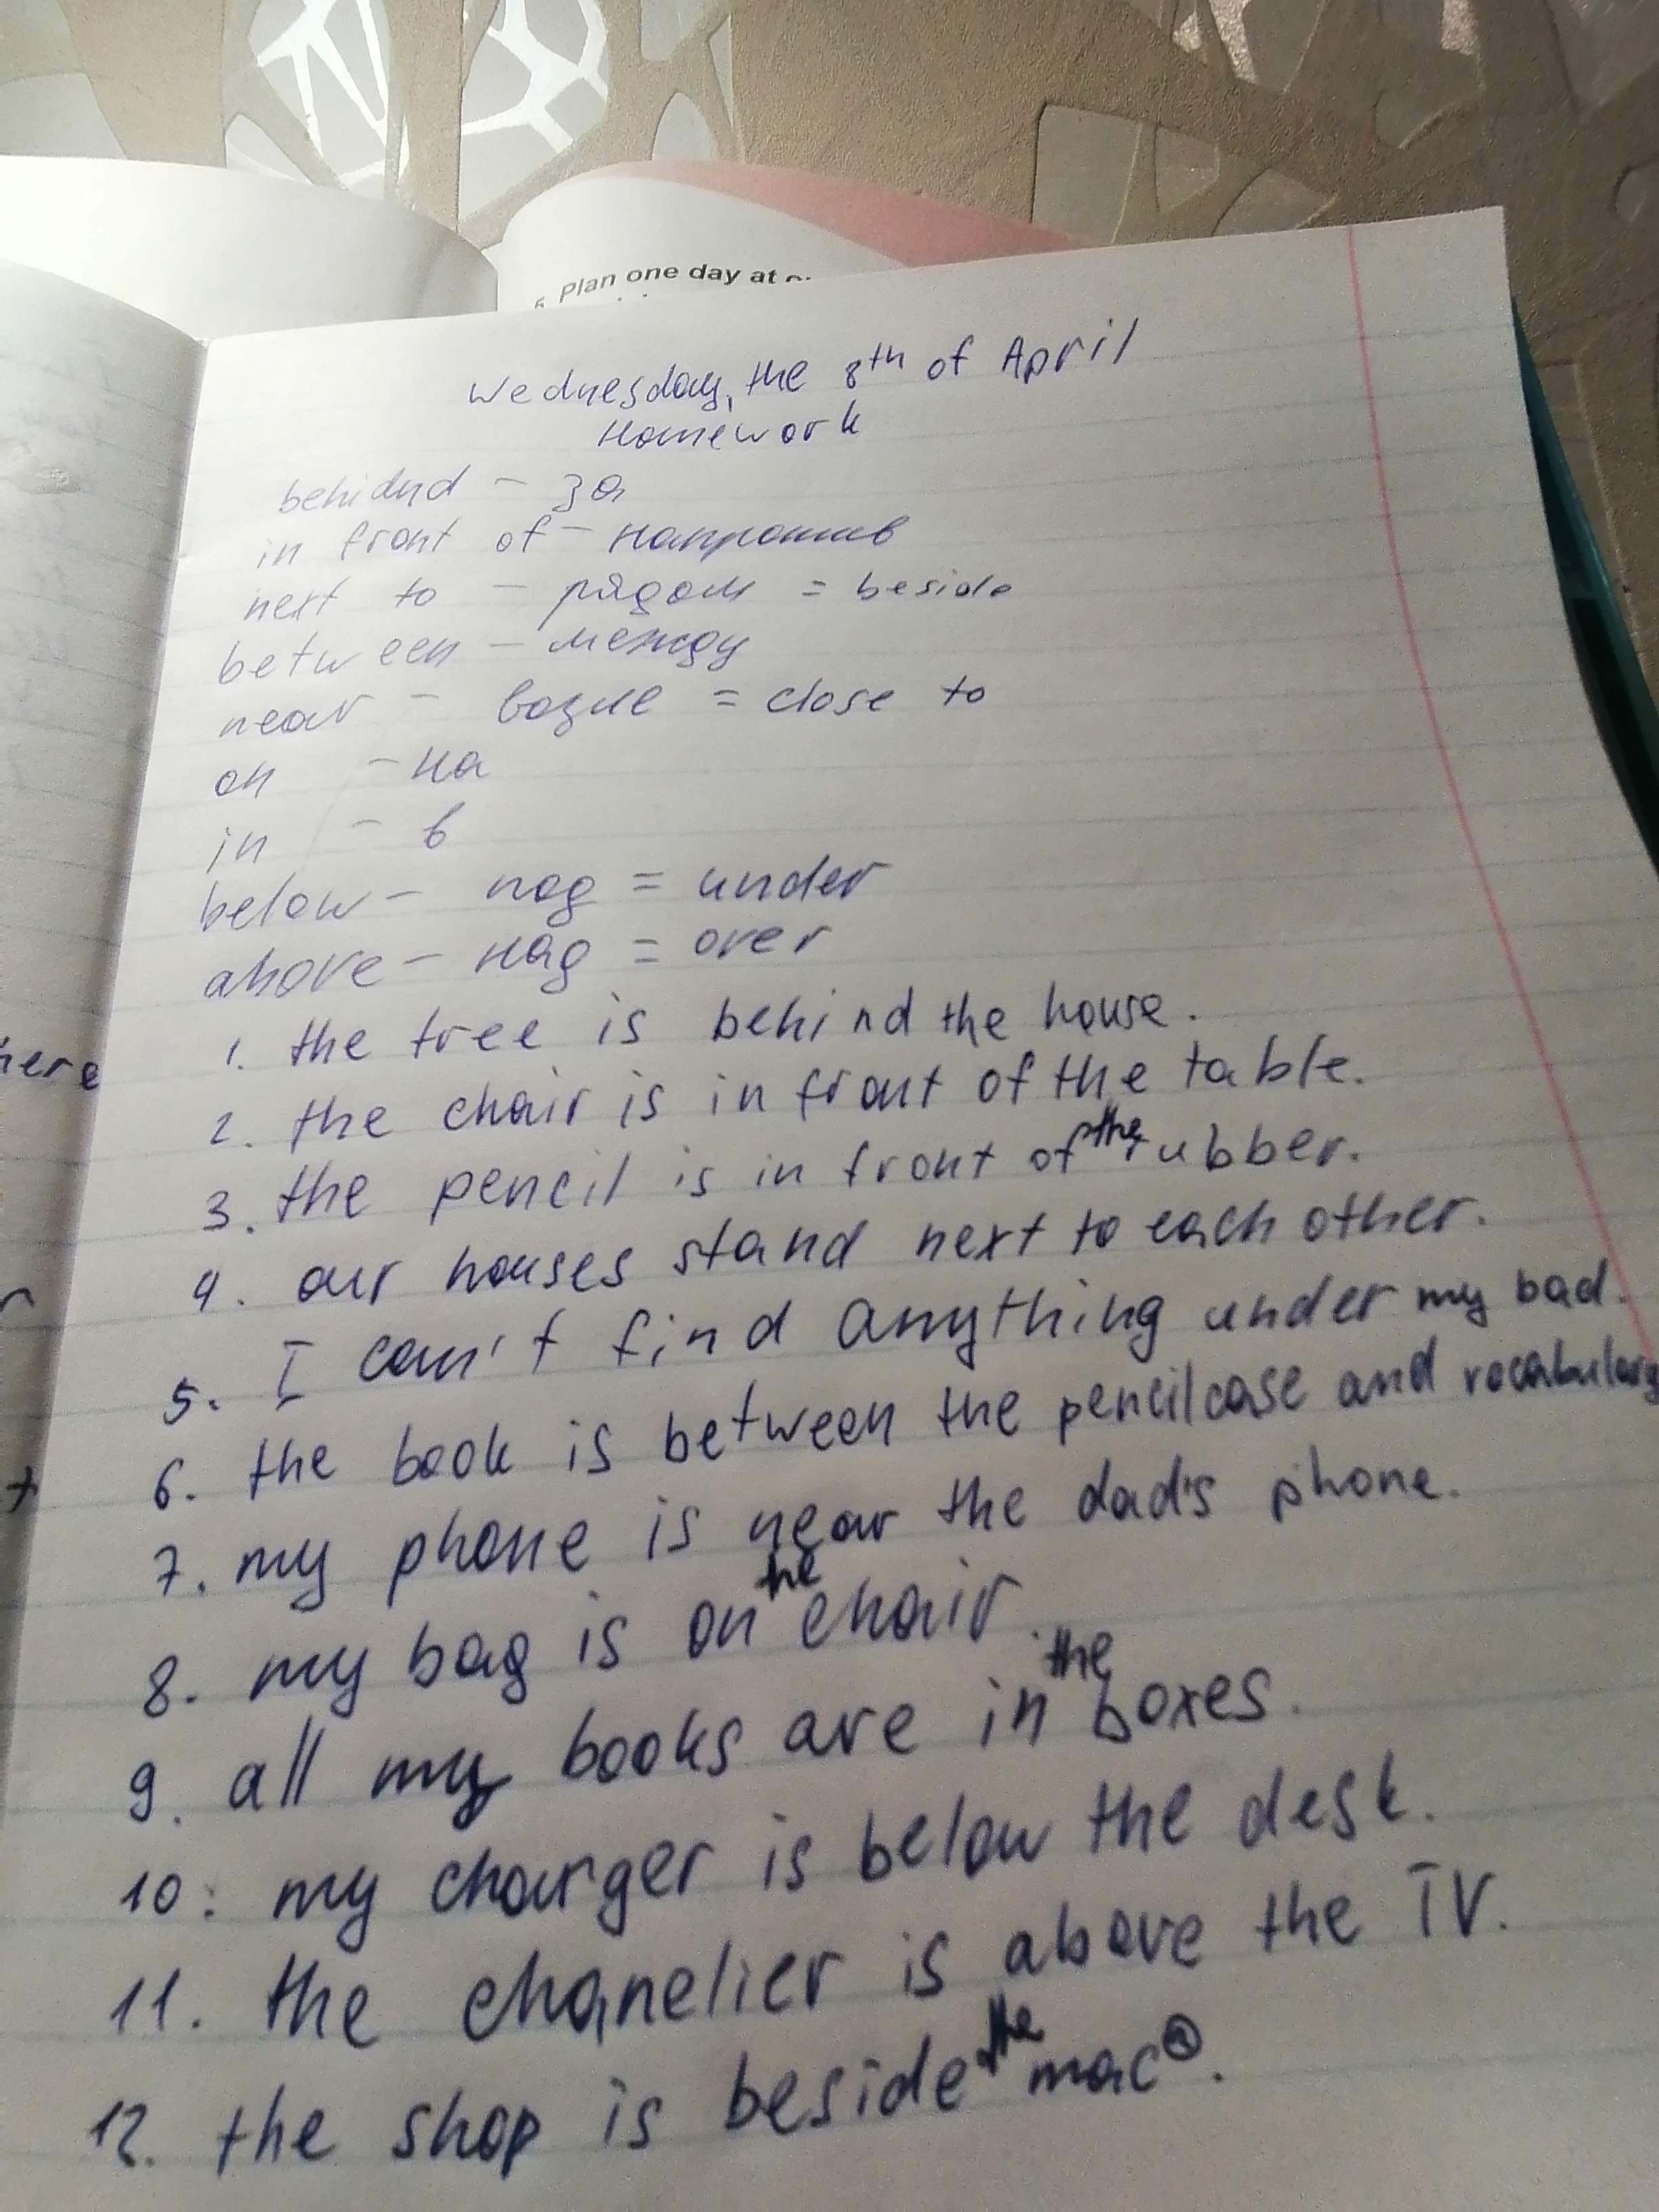 5. Plan one day at
Wednesday, the 8th of April
Homework
behidnd - за
in front of - напротив
next to - рядом = beside
between - между
near - возле = close to
on - на
in - в
below - под = under
above - над = over
1. the tree is behind the house.
2. the chair is in front of the table.
3. the pencil is in front of the rubber.
4. our houses stand next to each other.
5. I can't find anything under my bad.
6. the book is between the pencilcase and vocabulary
7. my phone is near the dad's phone.
8. my bag is on the chair.
9. all my books are in the boxes.
10. my charger is below the desk.
11. the chanelier is above the TV.
12. the shop is beside the mac.